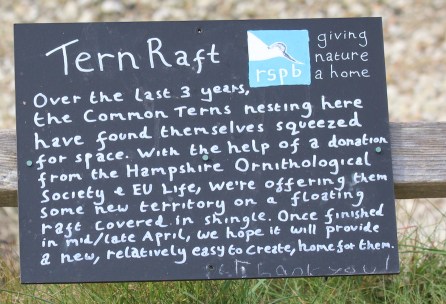 Tern Raft
rspb
giving
nature
a home
Over the last 3 years,
the Common Terns nesting here
have found themselves squeezed
for space. With the help of a donation
from the Hampshire Ornithological
Society & EU Life, we're offering them
some new territory on a floating
raft covered in shingle. Once finished
in mid/late April, we hope it will provide
a new, relatively easy to create, home for them.
Thank you!